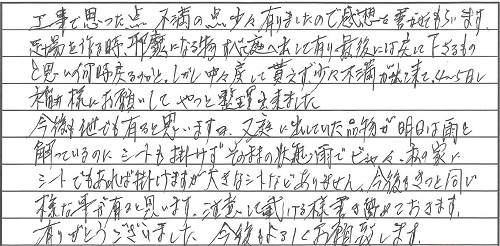 工事で思った点 不満の点少々有りましたので感想を書かせてもらいます。
足場を作る時、邪魔になる物すべて庭へ出して有り最後には戻して下さるもの
と思い何時戻るのかと、しかし中々戻して貰えず少々不満が出て来て、4〜5日し
様にお願いしてやっと整理出来ました
今後も他でも有ると思いますが、又庭に出していた品物が明日は雨と
解っているのにシートも掛けずその時の状態で雨でビショビショ、私の家に
シートでもあれば掛けますが大きなシートなどありません、今後もきっと同じ
様な事が有ると思います、注意して戴ける様書き留めておきます。
有りがとうございました 今後もよろしくお願い致します。